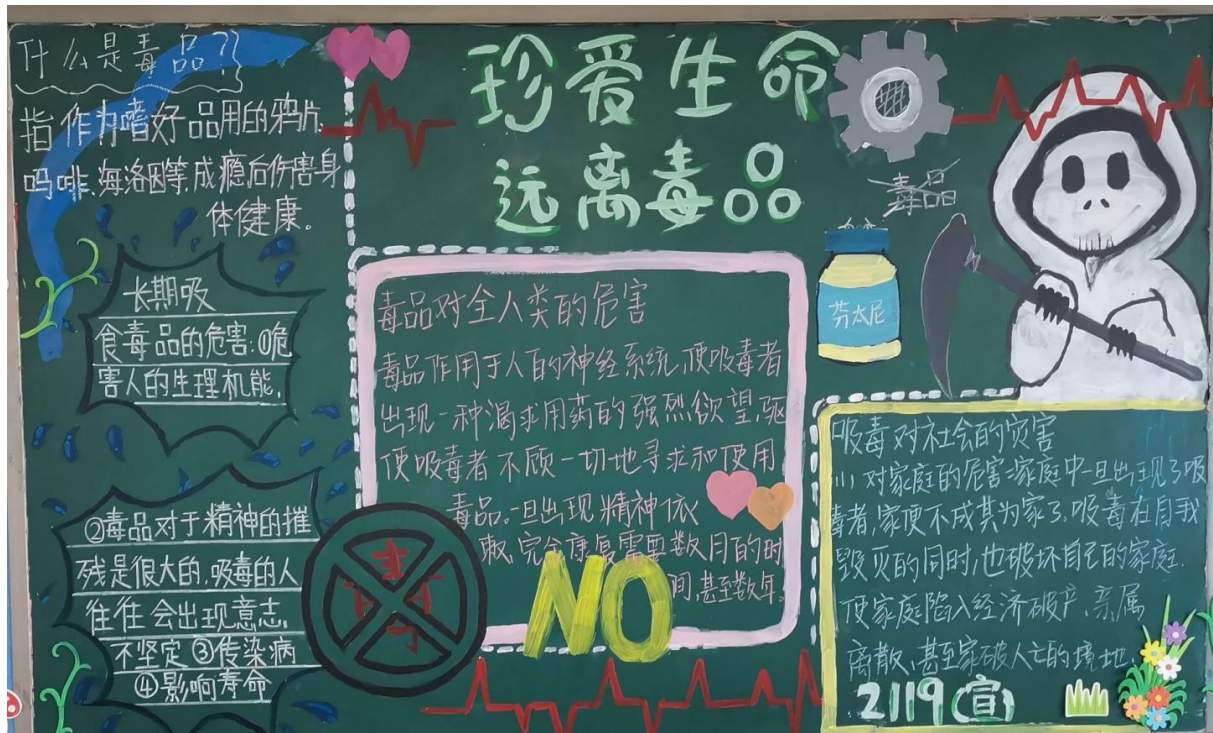 珍爱生命
远离毒品
什么是毒品?
指作为嗜好品用的鸦片、
吗啡、海洛因等,成瘾后伤害身
体健康。
长期吸
食毒品的危害:①危
害人的生理机能,
②毒品对于精神的摧
残是很大的,吸毒的人
往往会出现意志,
不坚定③传染病
④影响寿命
毒品对全人类的危害
毒品作用于人的神经系统,使吸毒者
出现一种渴求用药的强烈欲望,驱
使吸毒者不顾一切地寻求和使用
毒品。一旦出现精神依
赖,完全康复需要数月的时
间,甚至数年。
毒
NO
毒品
芬太尼
吸毒对社会的灾害
(1)对家庭的危害:家庭中一旦出现了吸
毒者,家便不成其为家了,吸毒在自我
毁灭的同时,也破坏自己的家庭.
使家庭陷入经济破产、亲属
离散、甚至家破人亡的境地。
2119(宣)